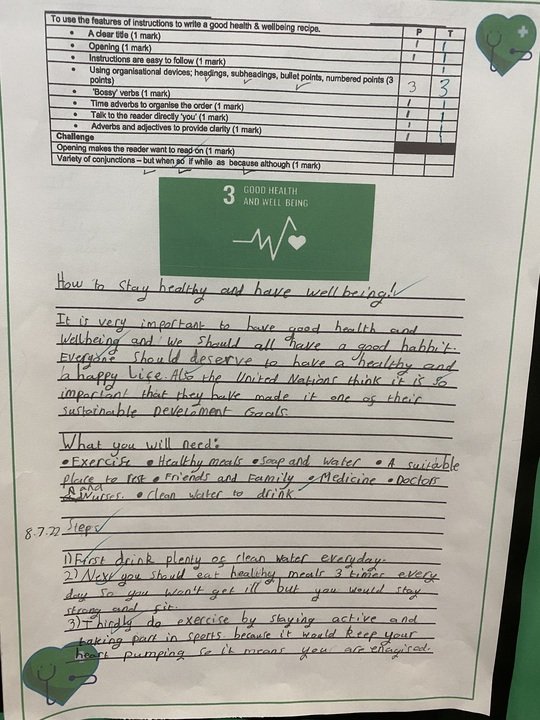 To use the features of instructions to write a good health & wellbeing recipe.
P T
• A clear title (1 mark)
• Opening (1 mark)
• Instructions are easy to follow (1 mark)
• Using organisational devices; headings, subheadings, bullet points, numbered points (3
points)
3 3
• 'Bossy' verbs (1 mark)
• Time adverbs to organise the order (1 mark)
• Talk to the reader directly 'you' (1 mark)
• Adverbs and adjectives to provide clarity (1 mark)
Challenge
Opening makes the reader want to read on (1 mark)
Variety of conjunctions – but when so if while as because although (1 mark)
3 GOOD HEALTH
AND WELL-BEING
How to stay healthy and have well being!
It is very important to have good health and
Wellbeing and we should all have a good habbit.
Everyone should deserve to have a healthy and
a happy Life. Also the United Nations think it is so
important that they have made it one of their
sustainable Develoment Goals.
What you will need:
• Exercise • Healthy meals • soap and water • A suitable
place to rest • Friends and Family • Medicine • Doctors
and Nurses. • clean water to drink
8.7.22 Steps
1) First drink plenty of clean water everyday.
2) Next you should eat healthy meals 3 times every
day so you won't get ill but you would stay
strong and fit.
3) Thirdly do exercise by staying active and
taking part in sports because it would keep your
heart pumping so it means you are enagised.